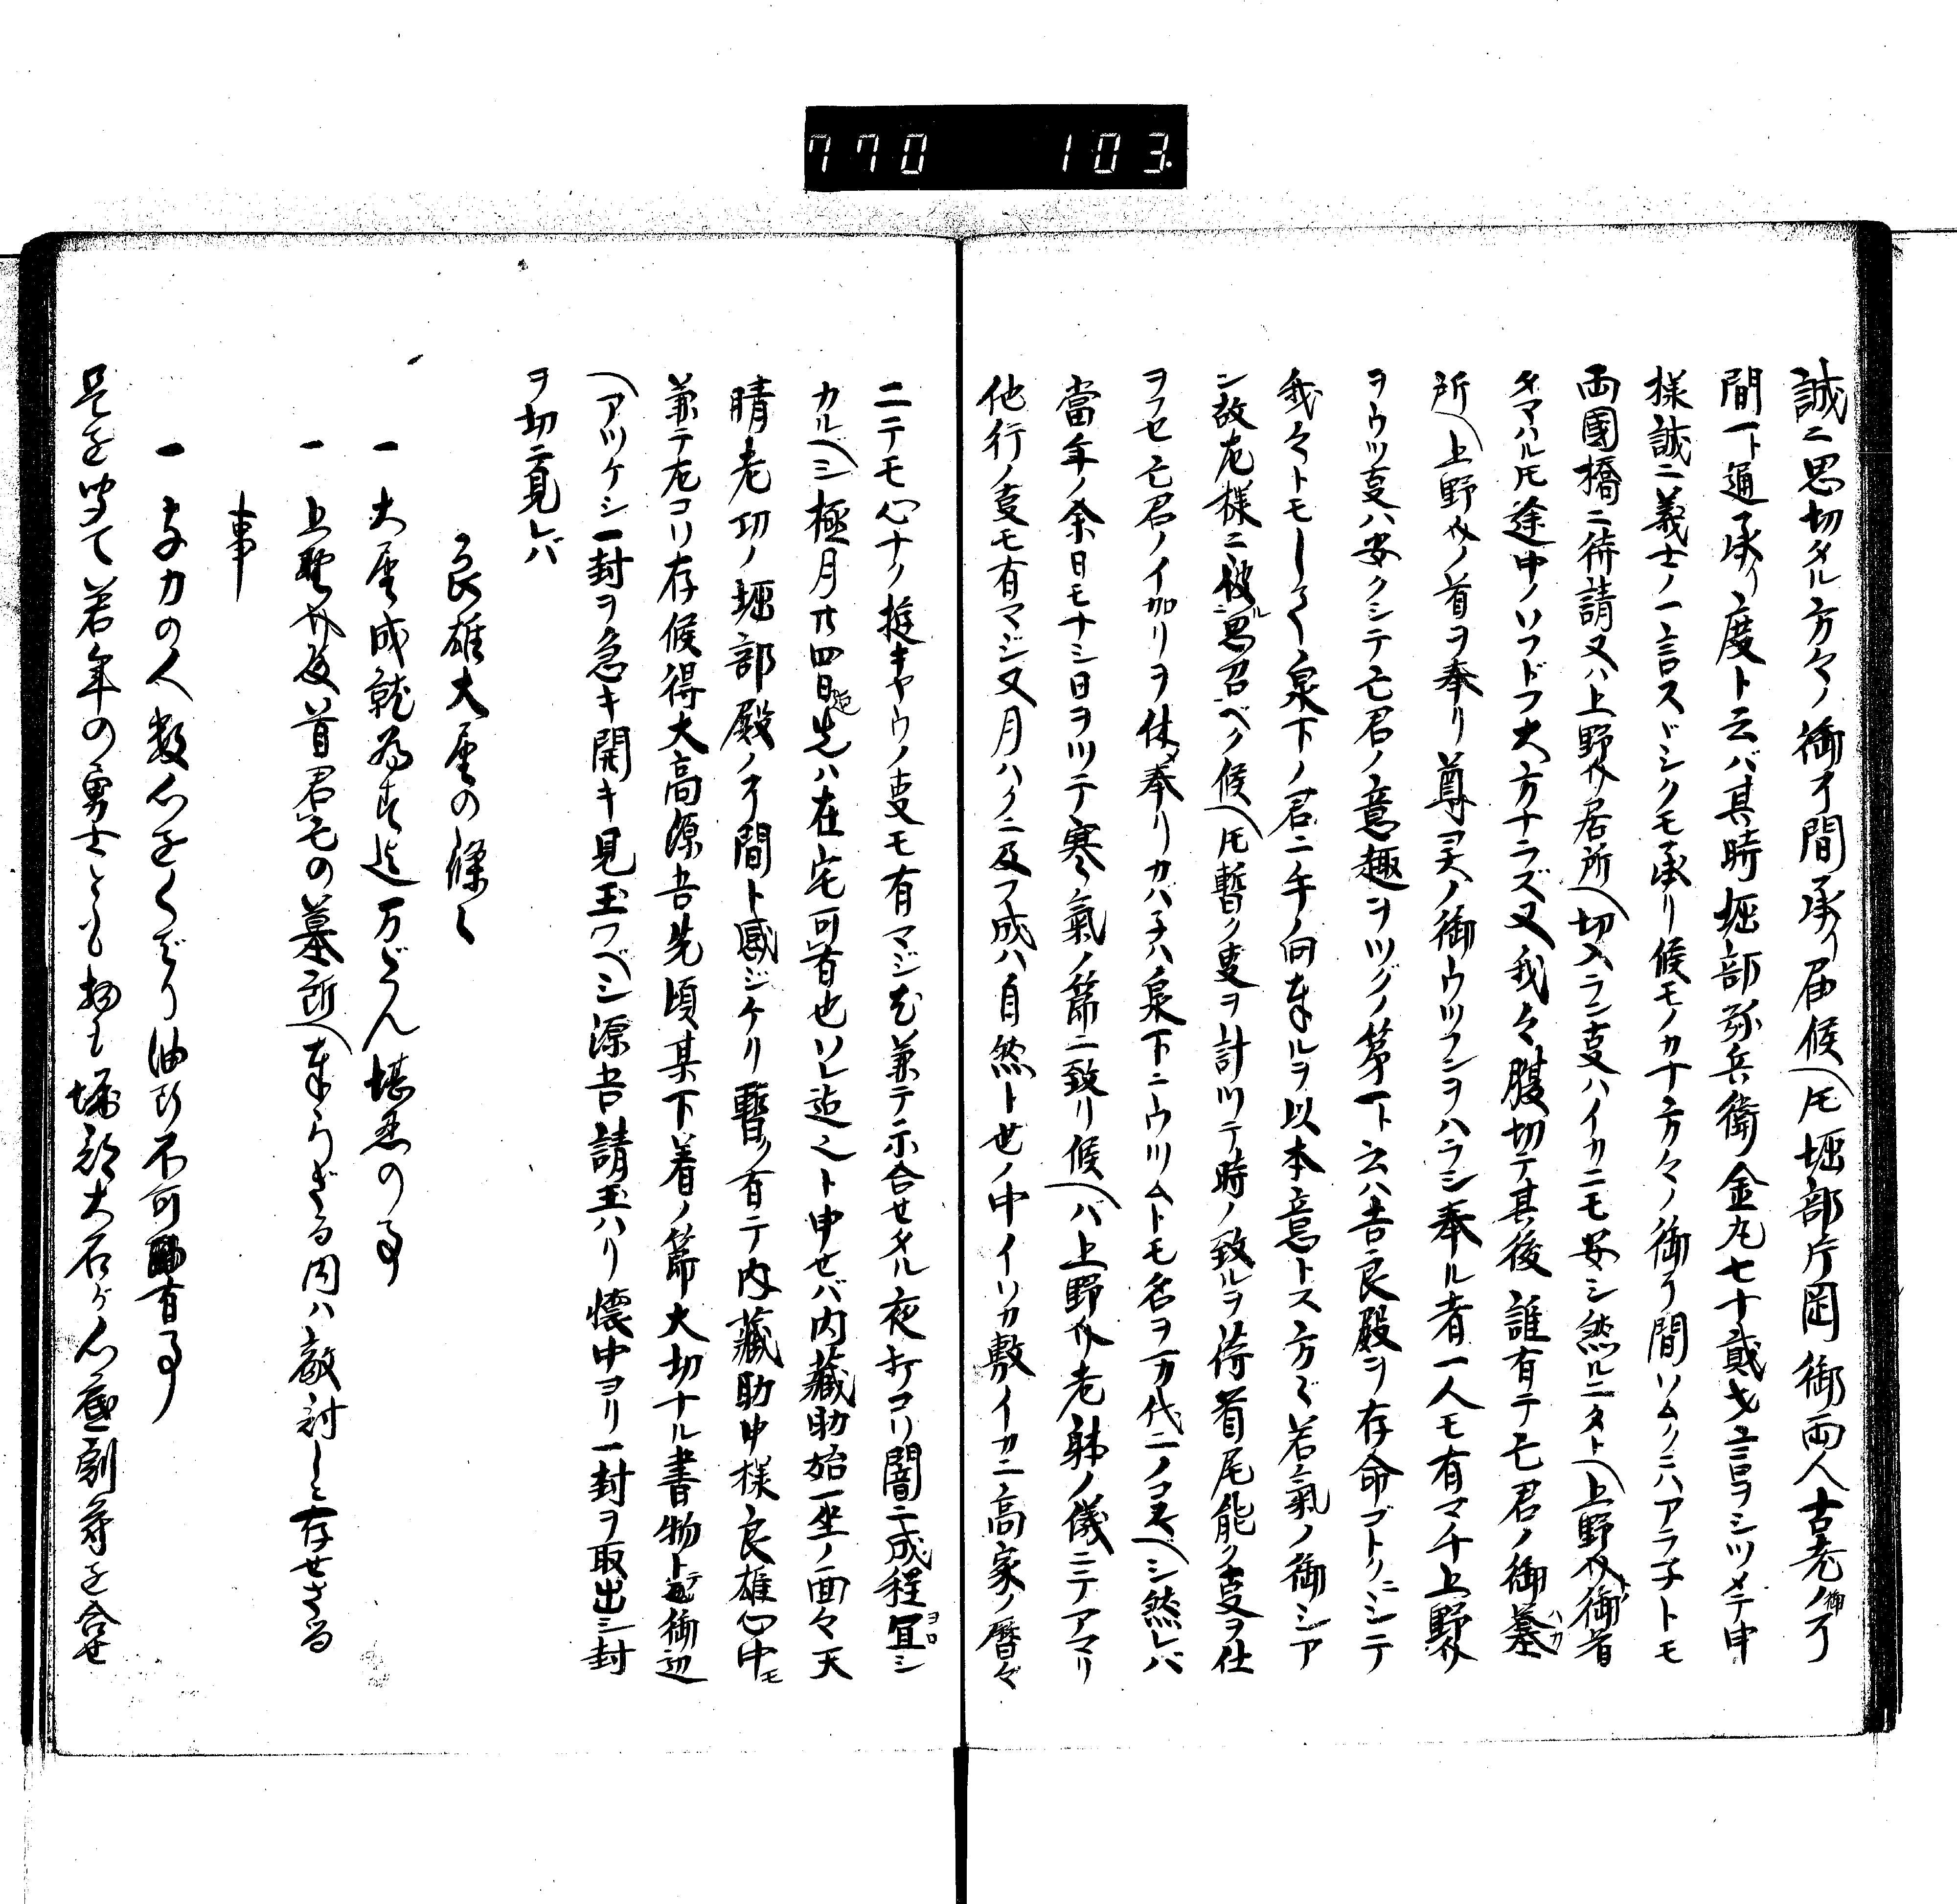 770 103.
誠ニ思切タル方々ノ御了間承リ届候ヘ𪜈堀部片岡御両人古老ノ御了
間一ト通承リ度ト云バ其時堀部弥兵衛金丸七十貳才言ヲシツメテ申
様誠ニ義士ノ一言スヾシクモ承リ候モノカナ方々ノ御了間ソムクニハアラ子トモ
両國橋ニ待請又ハ上野介居所ヘ切入ラン叓ハイカニモ安シ然ルニタトヘ上野介御首
タマハル𪜈途中ノソフドフ大方ナラズ又我々腹切テ其後誰有テ亡君ノ御墓
所ヘ上野介ノ首ヲ奉リ尊灵ノ御ウツフンヲハラシ奉ル者一人モ有マチ上野介
ヲウツ叓ハ安クシテ亡君ノ意趣ヲツグノ第一ト云ハ吉良殿ヲ存命ゴトクニシテ
我々トモ泉下ノ君ニ手向奉ルヲ以本意トス方々若氣ノ御シア
ン故左様ニ被思召ベク候ヘ𪜈暫ク叓ヲ計ツテ時ノ致ルヲ待首尾能ク叓ヲ仕
ヲフセ亡君ノイカリヲ休メ奉リカバ子ハ泉下ニウツムトモ名ヲ万代ニノコスベシ然レバ
當年ノ余日モナシ日ヲツテ寒氣ノ節ニ致リ候ヘバ上野介老躰ノ儀ニテアマリ
他行ノ叓モ有マジ又月ハクニ及フ成ハ自然ト世ノ中イソカ敷イカニ高家ノ暦々
ニテモ心ナク挺キヤウノ叓モ有マジ尤兼テ示合セタル夜打コソ闇ニ成程宜シ
カルベシ極月廿四日迄先ハ在宅可有也ソレ迄之ト申セバ内藏助始一坐ノ面々天
晴老功ノ堀部殿ノ了間ト感ジケリ暫ク有テ内藏助申様良雄心中モ
兼テ左コソ存候得大高源吾先頃某下着ノ節大切ナル書物トテ御辺
ヘアツケシ一封ヲ急キ開キ見玉フベシ源吾請玉ハリ懐中ヨリ一封ヲ取出シ封
ヲ切ニ見レバ
良雄大望の條々
一 大望成就為迄万どん堪忍の事
一 上野介殿首君亡の墓所へ奉らざる内ハ敵討しと存せさる
事
一 与力の人数心をくだり油断不可有事
是を聞て若年の勇士とも扨も堀部大石が心底割苻を合せ